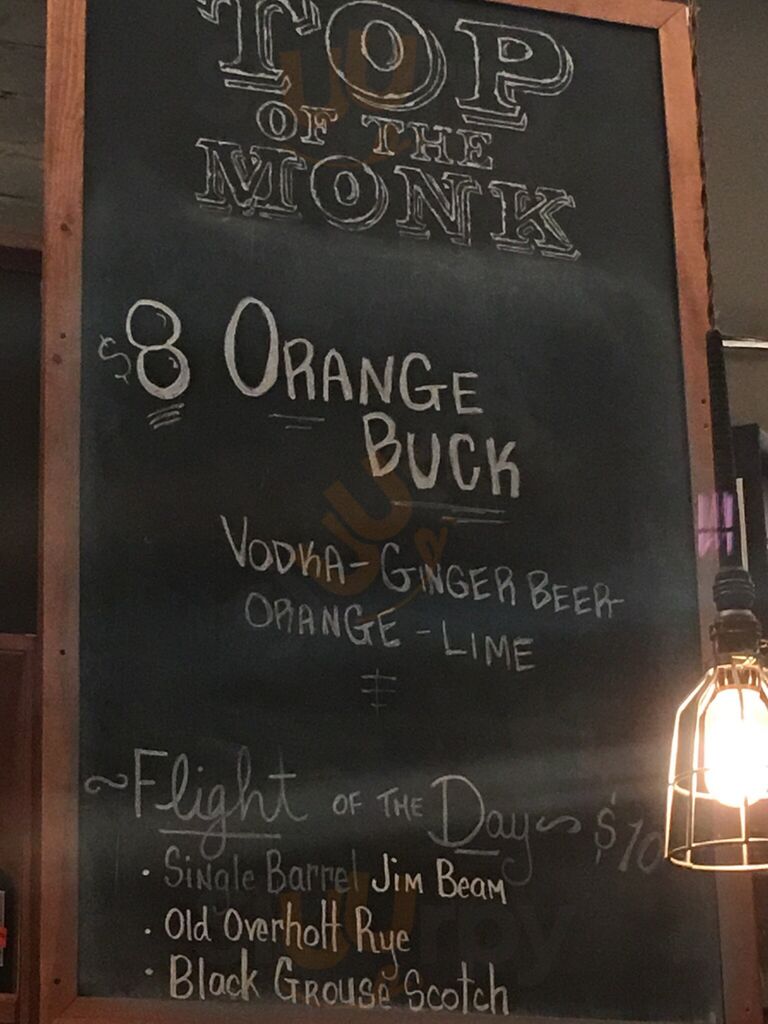 TOP
OF THE
MONK
$8 ORANGE
BUCK
VODKA - GINGER BEER -
ORANGE - LIME
~Flight OF THE Day~ $10
· Single Barrel Jim Beam
· Old Overholt Rye
· Black Grouse Scotch